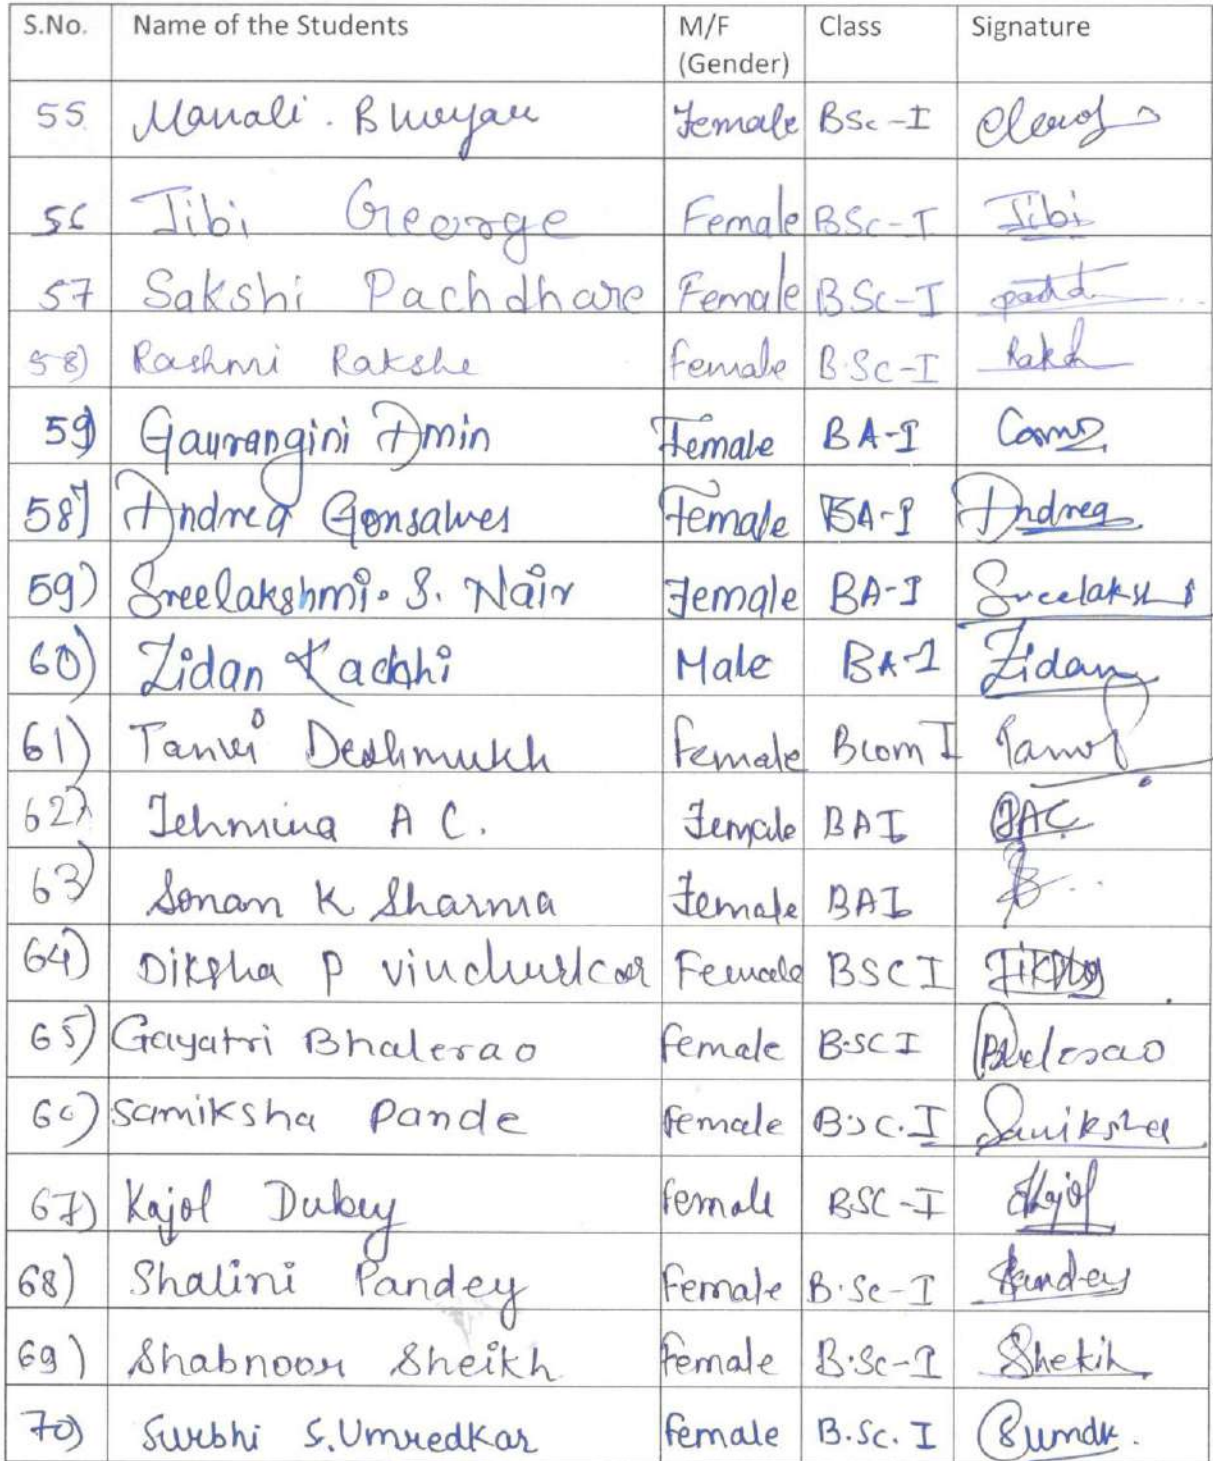 S.No. Name of the Students M/F (Gender) Class Signature
55 Manali . Bhuyau Female BSc-I
56 Jibi George Female BSc-I Jibi
57 Sakshi Pachdhare Female BSc-I
58) Rashmi Rakshe female B.Sc-I Raksh
59) Gaurangini Amin Female BA-I
58) Andrea Gonsalves Female BA-I Andrea
59) Sreelakshmi. S. Nair Female BA-I Sreelakshmi
60) Zidan Kachhi Male BA-1 Zidan
61) Tanvi Deshmukh female Bcom I
62) Tehmina A C. Female BAI TAC
63) Sonam K Sharma Female BAI
64) Diksha P vinchurkar Female BSC I Diksha
65) Gayatri Bhalerao female B.SC I Bhalerao
66) Samiksha Pande female B.SC.I Samiksha
67) Kajol Dubey female B.SC-I Kajol
68) Shalini Pandey female B.Sc-I Pandey
69) Shabnoor Sheikh female B.Sc-I Shekih
70) Surbhi S.Umredkar female B.Sc. I Sumdk.